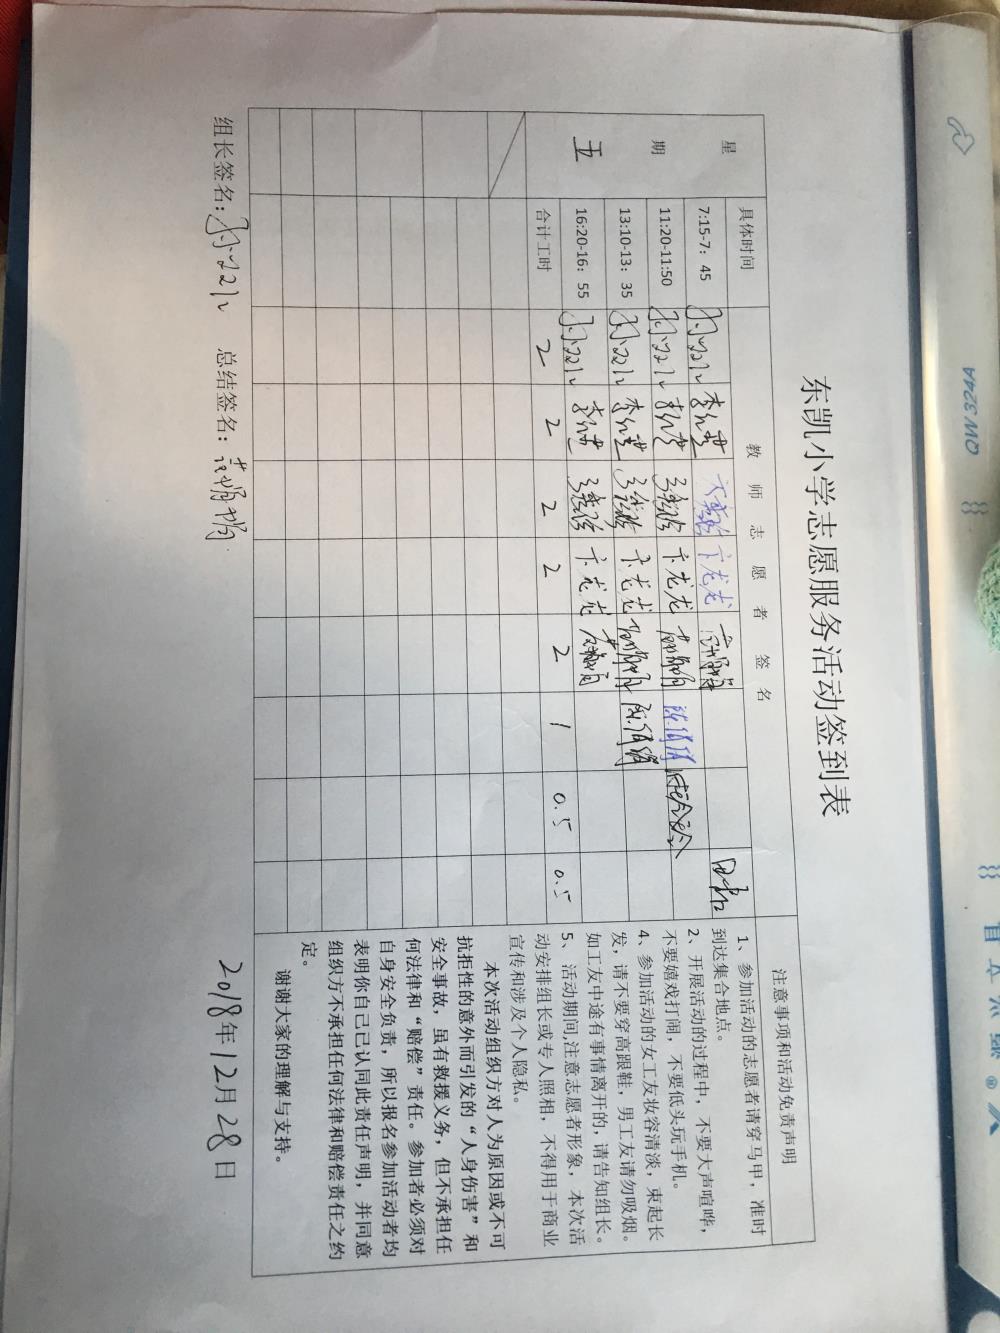 东凯小学志愿服务活动签到表
星期五
具体时间
教师志愿者签名
注意事项和活动免责声明
7:15-7：45
11:20-11:50
13:10-13：35
16:20-16：55
卞龙龙
卞龙龙
卞龙龙
卞龙龙
合计工时 2 2 2 2 2 1 0.5 0.5
1、参加活动的志愿者请穿马甲，准时
到达集合地点。
2、开展活动的过程中，不要大声喧哗，
不要嬉戏打闹，不要低头玩手机。
4、参加活动的女工友妆容清淡，束起长
发，请不要穿高跟鞋，男工友请勿吸烟。
如工友中途有事情离开的，请告知组长。
5、活动期间,注意志愿者形象，本次活
动安排组长或专人照相，不得用于商业
宣传和涉及个人隐私。
本次活动组织方对人为原因或不可
抗拒性的意外而引发的“人身伤害”和
安全事故，虽有救援义务，但不承担任
何法律和“赔偿”责任。参加者必须对
自身安全负责，所以报名参加活动者均
表明你自己已认同此责任声明，并同意
组织方不承担任何法律和赔偿责任之约
定。
谢谢大家的理解与支持。
组长签名： 总结签名： 2018年12月28日